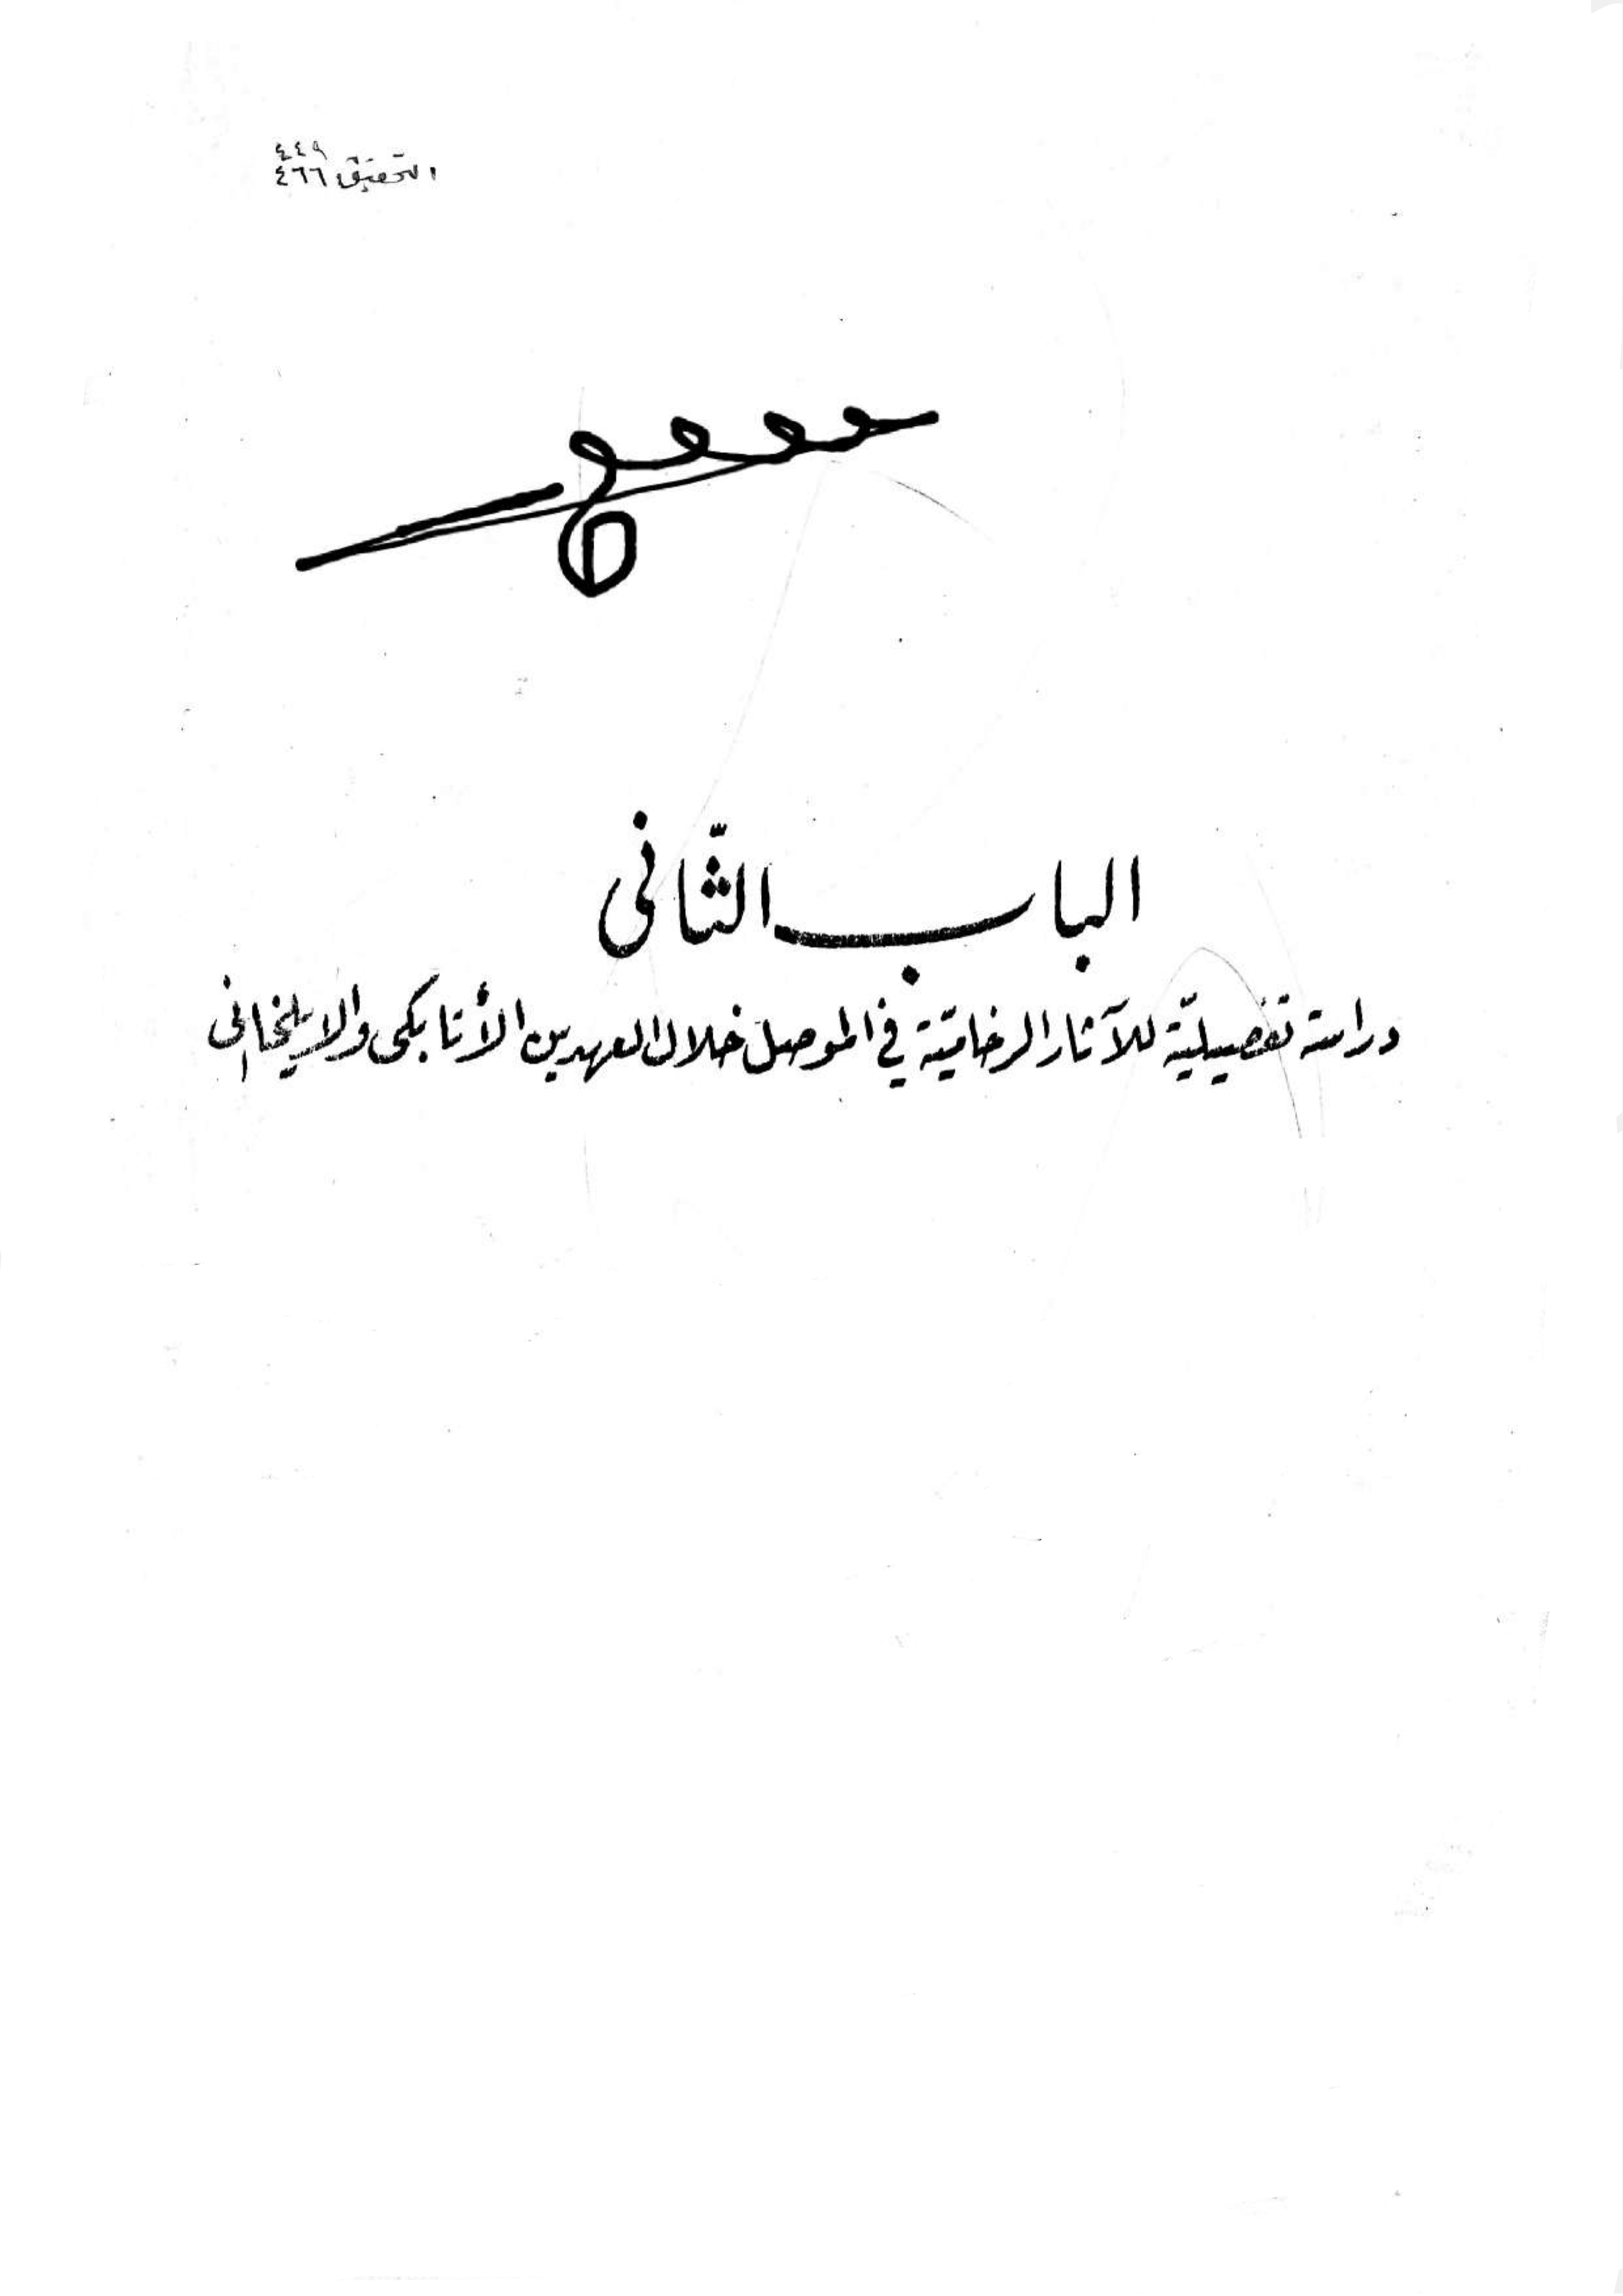 ٤٤٩
٤٦٦
الباب الثّانى
دراسة تفصيليّة للآثار الرخاميّة في الموصل خلال العهدين الأتابكى والايلخانى